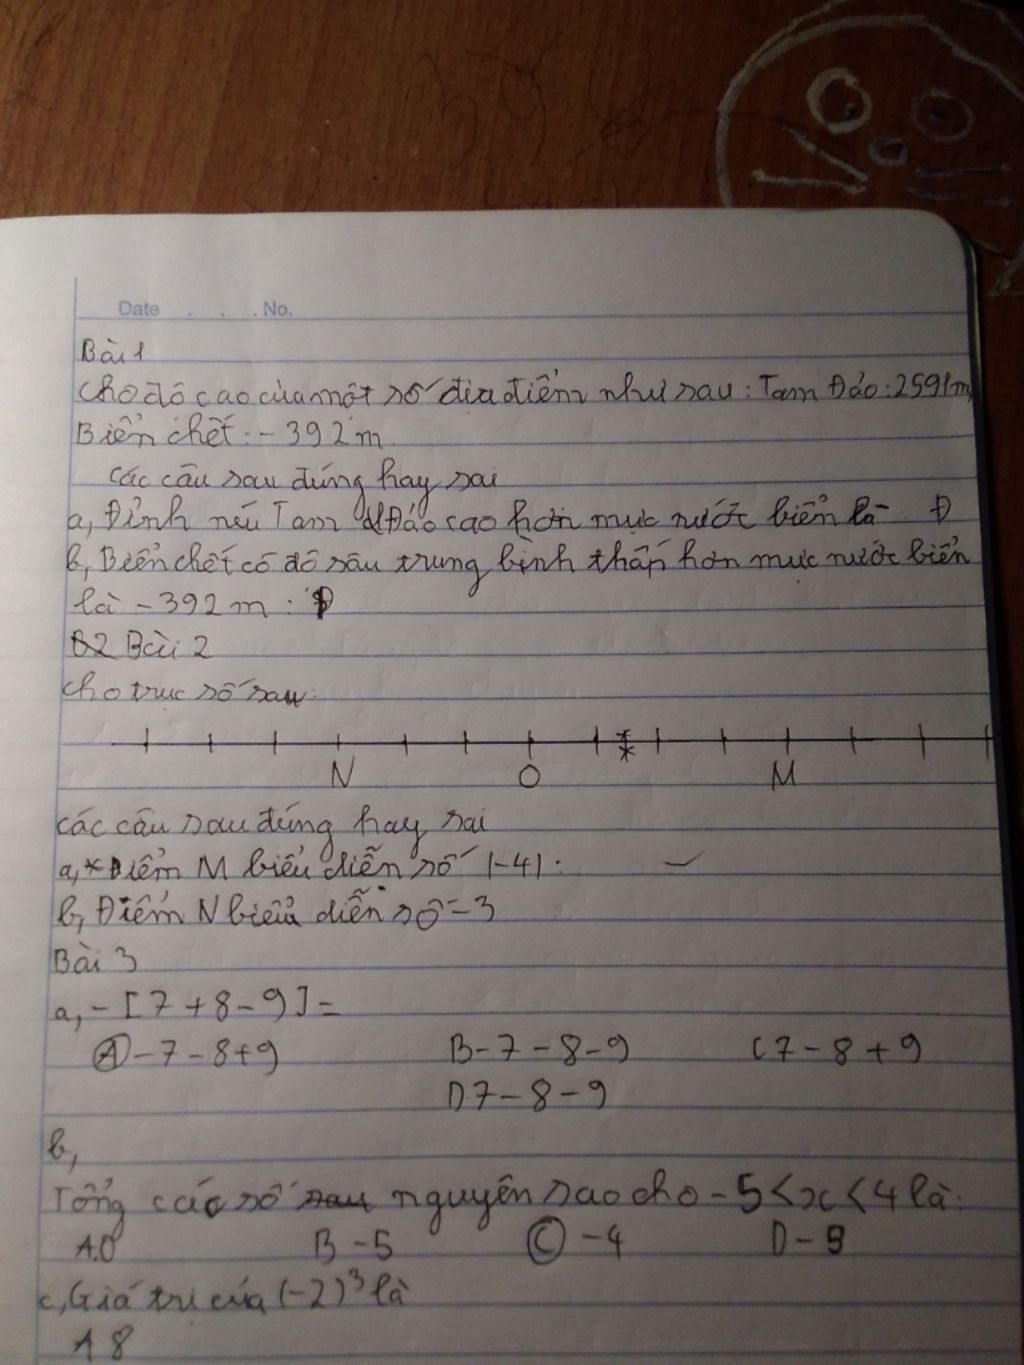 Date . . . No.
Bài 1
Cho độ cao của một số địa điểm như sau: Tam Đảo: 2591m,
Biển chết: -392m.
Các câu sau đúng hay sai
a, Đỉnh núi Tam Đảo cao hơn mực nước biển là Đ
b, Biển chết có độ sâu trung bình thấp hơn mực nước biển
là -392m: Đ
Bài 2
Cho trục số sau:
N O M
Các câu sau đúng hay sai
a, * Điểm M biểu diễn số |-4|:
b, Điểm N biểu diễn số -3
Bài 3
a, -[7+8-9]=
A -7-8+9 B -7-8-9 C 7-8+9
D 7-8-9
b,
Tổng các số sau nguyên sao cho -5<x<4 là:
A.0 B -5 C -4 D -9
c, Giá trị của (-2)³ là
A 8